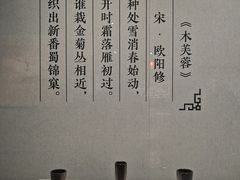 《木芙蓉》
宋·欧阳修
种处雪消春始动，
开时霜落雁初过。
谁栽金菊丛相近，
织出新番蜀锦窠。